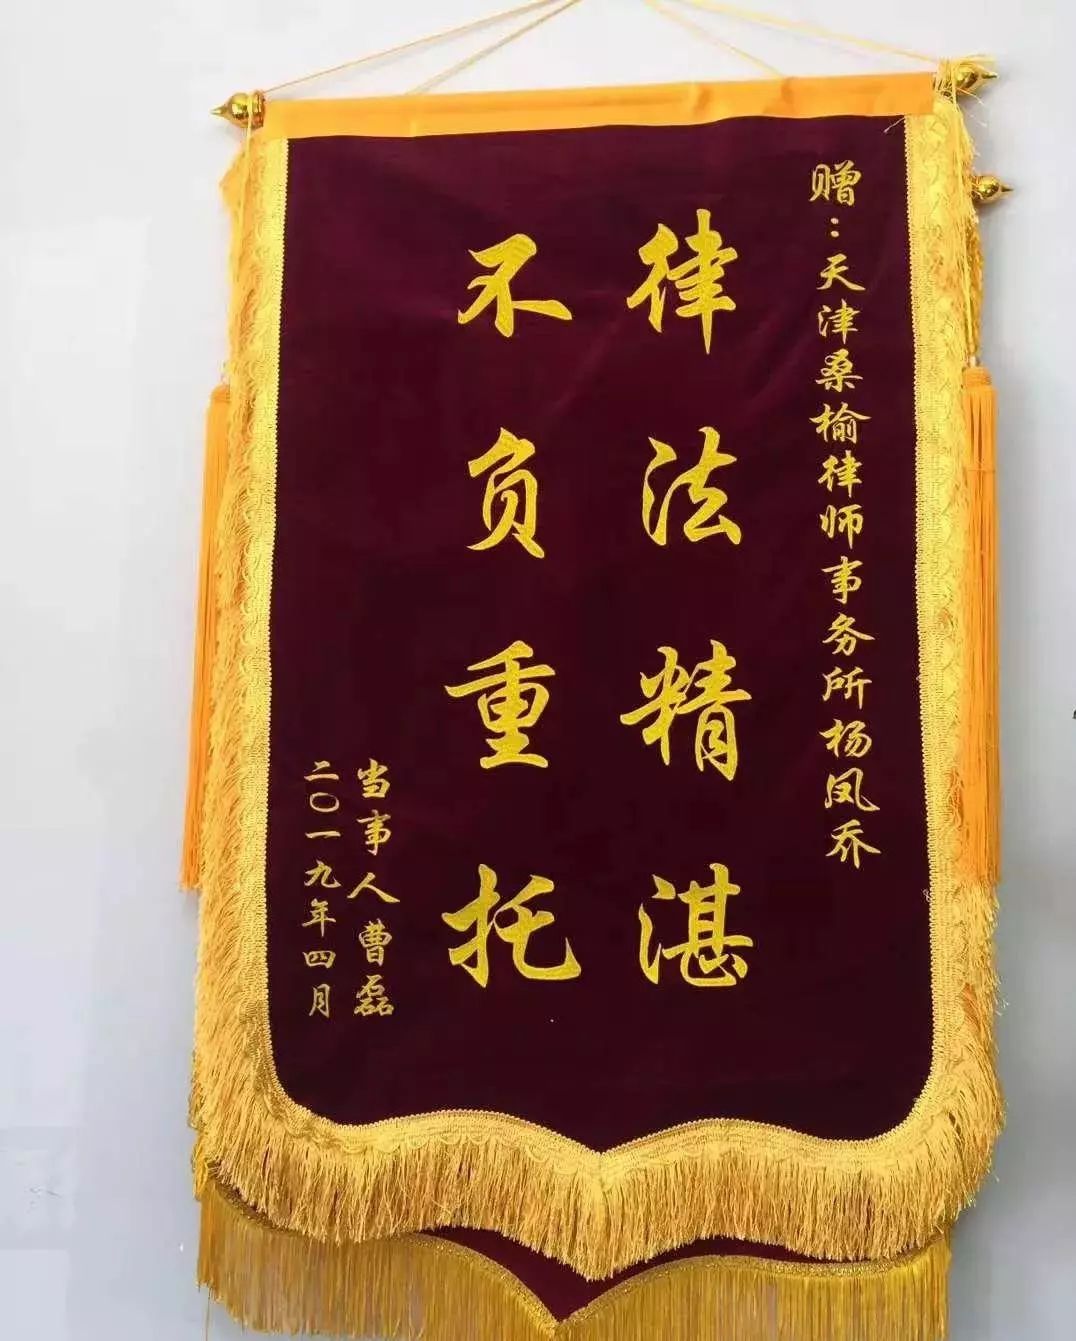 赠：天津桑榆律师事务所杨凤乔
律法精湛
不负重托
当事人曹磊
二〇一九年四月